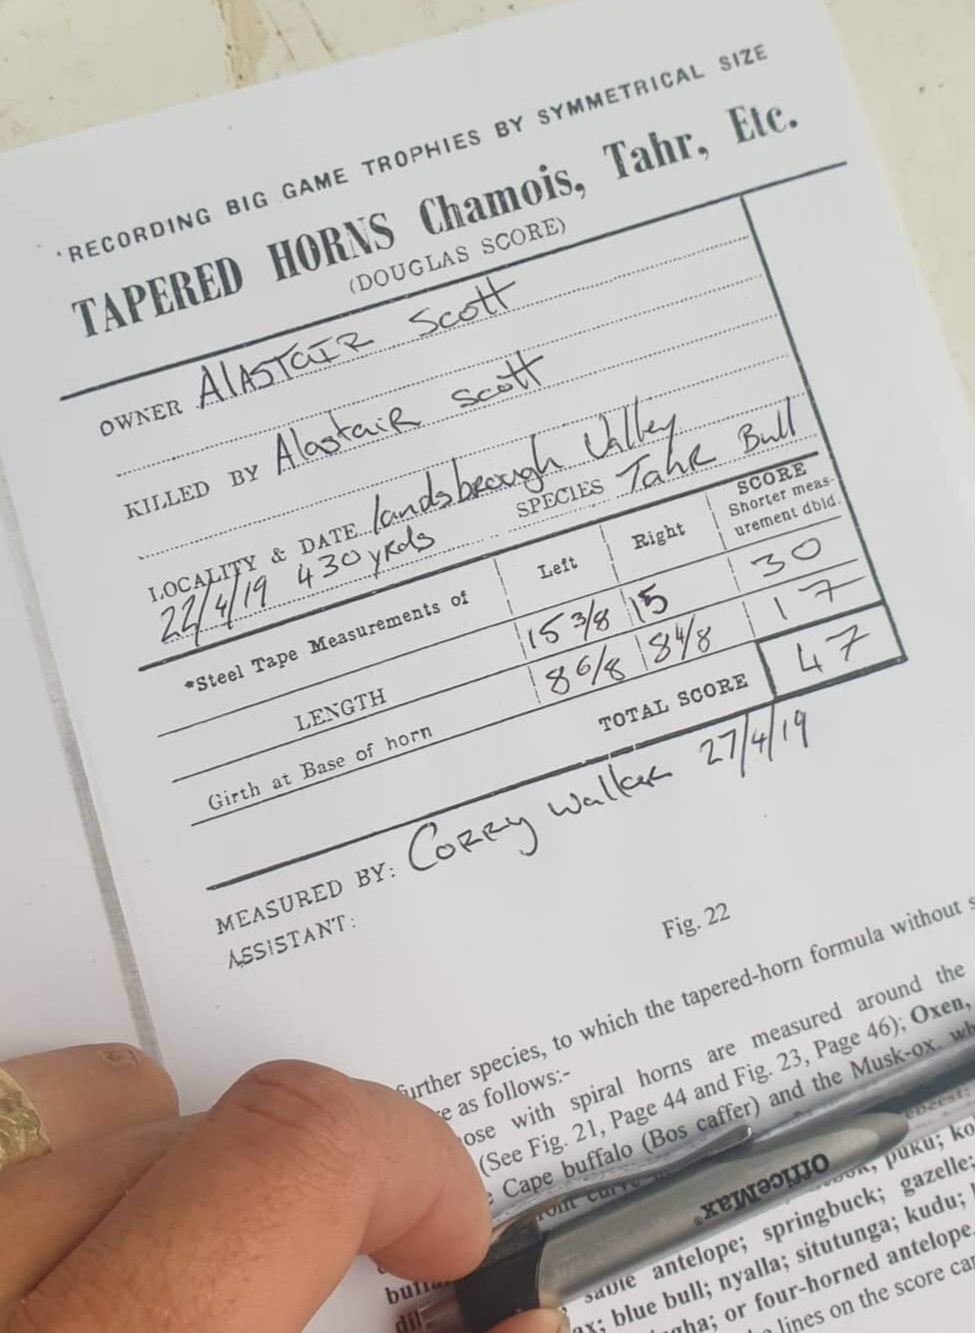 RECORDING BIG GAME TROPHIES BY SYMMETRICAL SIZE
TAPERED HORNS Chamois, Tahr, Etc.
(DOUGLAS SCORE)
OWNER Alastair Scott
KILLED BY Alastair Scott
LOCALITY & DATE landsbrough Valley
22/4/19 430 yrds SPECIES Tahr Bull
*Steel Tape Measurements of Left Right SCORE Shorter meas- urement dbld.
LENGTH 15 3/8 15 30
Girth at Base of horn 8 6/8 8 4/8 17
TOTAL SCORE 47
MEASURED BY: Corry Walker 27/4/19
ASSISTANT:
Fig. 22
further species, to which the tapered-horn formula without
as follows:-
ose with spiral horns are measured around the
(See Fig. 21, Page 44 and Fig. 23, Page 46); Oxen,
Cape buffalo (Bos caffer) and the Musk-ox.
puku;
OfficeMax®
sable antelope; springbuck; gazelle;
blue bull; nyalla; situtunga; kudu;
or four-horned antelope.
lines on the score